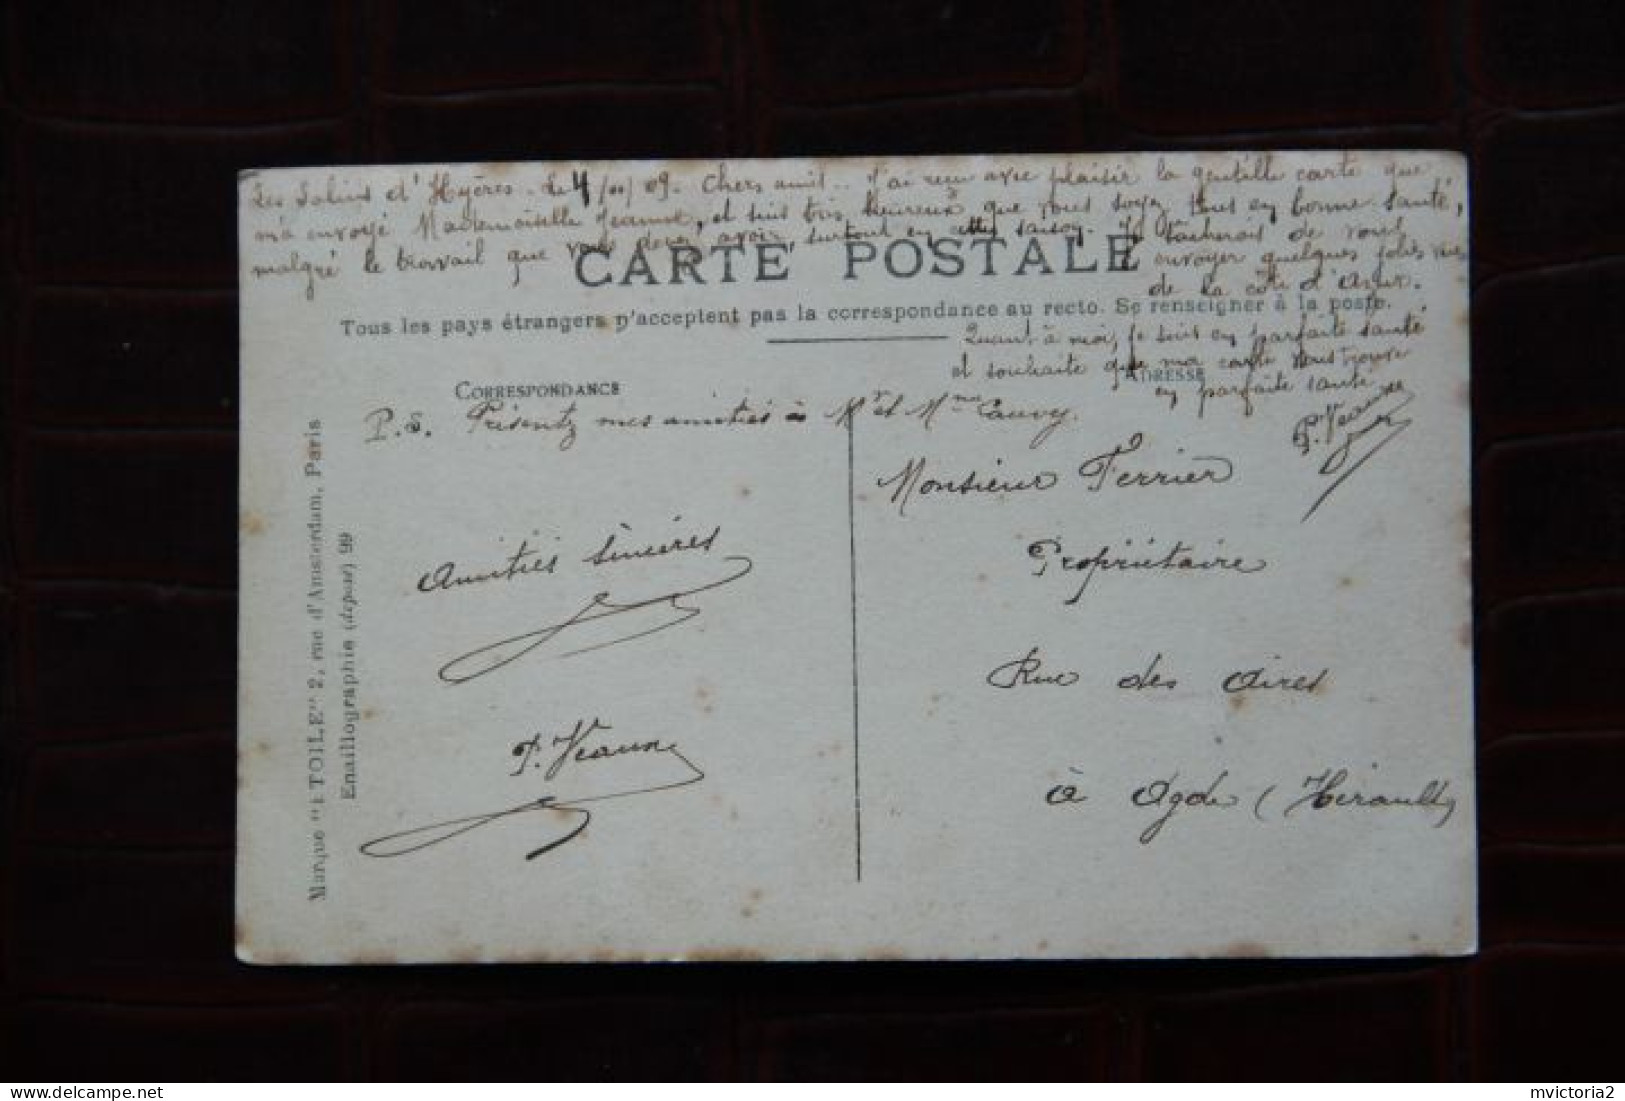 Les Salins d'Hyères. Le 4/10/09. Chers amis.. J'ai reçu avec plaisir la gentille carte que
m'a envoyé Mademoiselle Jeanne, et suis très heureux que vous soyez tous en bonne santé,
malgré le travail que vous devez avoir, surtout en cette saison. Je tâcherais de vous
envoyer quelques jolies vues
de la côte d'Azur.
CARTE POSTALE
Tous les pays étrangers n'acceptent pas la correspondance au recto. Se renseigner à la poste.
Quant à moi, je suis en parfaite santé
et souhaite que ma carte vous trouve
en parfaite santé
P. Veaune
CORRESPONDANCE
ADRESSE
P.S. Présentez mes amitiés à Mr et Mme Cauvy.
Amitiés sincères
P. Veaune
Monsieur Ferrier
Propriétaire
Rue des Aires
à Agde (Hérault)
Marque "ETOILE" 2, rue d'Amsterdam, Paris
Enaillographie (déposé) 99
delcampe.net
mvictoria2